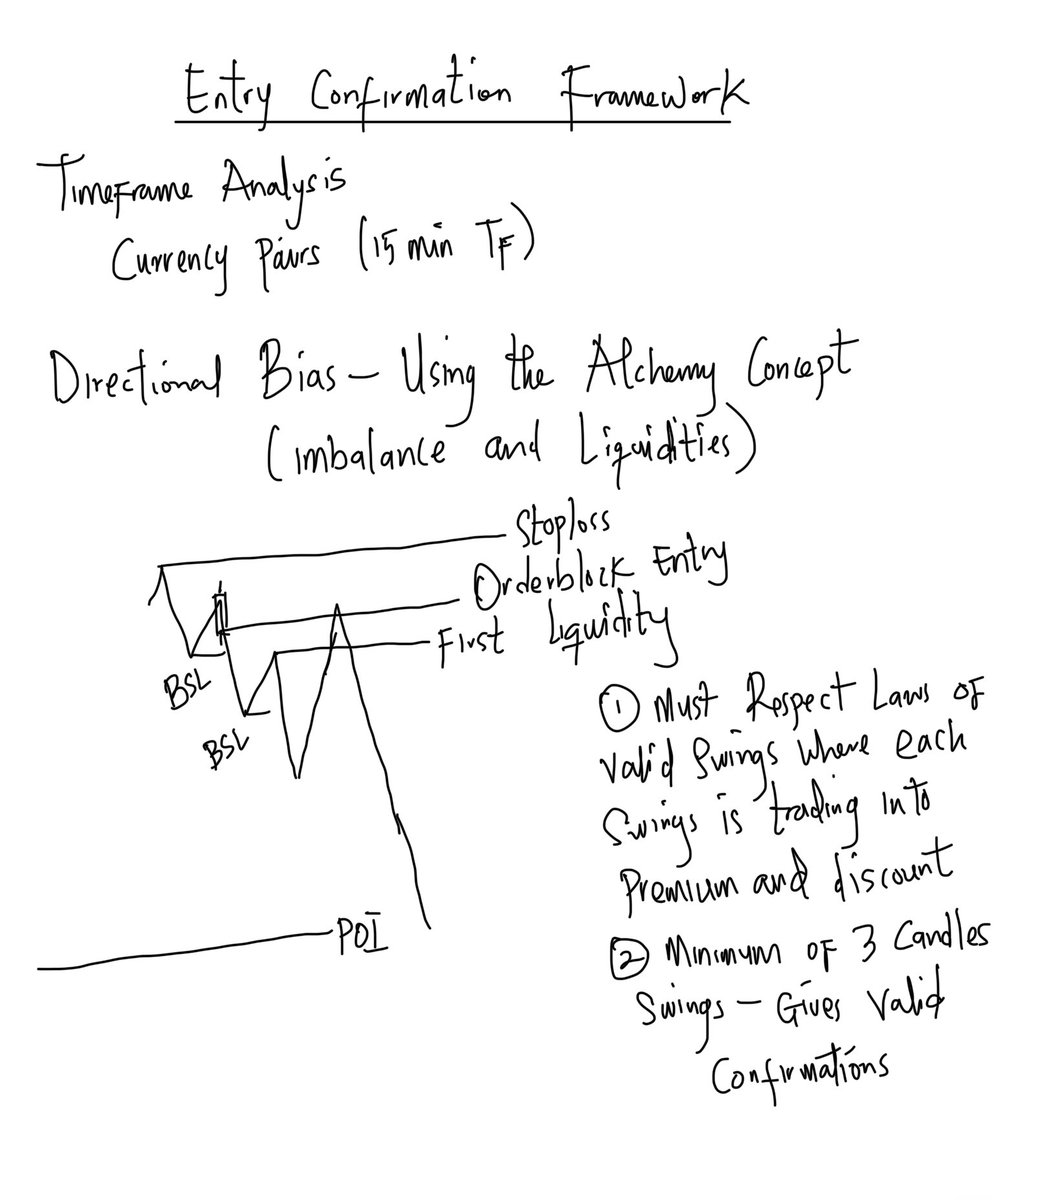 Entry Confirmation Framework
Timeframe Analysis
Currency Pairs (15 min TF)
Directional Bias – Using the Alchemy Concept
(imbalance and Liquidities)
Stoploss
Orderblock Entry
First Liquidity
BSL
BSL
POI
① Must Respect Laws of
Valid Swings where each
Swings is trading into
Premium and discount
② Minimum of 3 Candles
Swings – Gives Valid
Confirmations